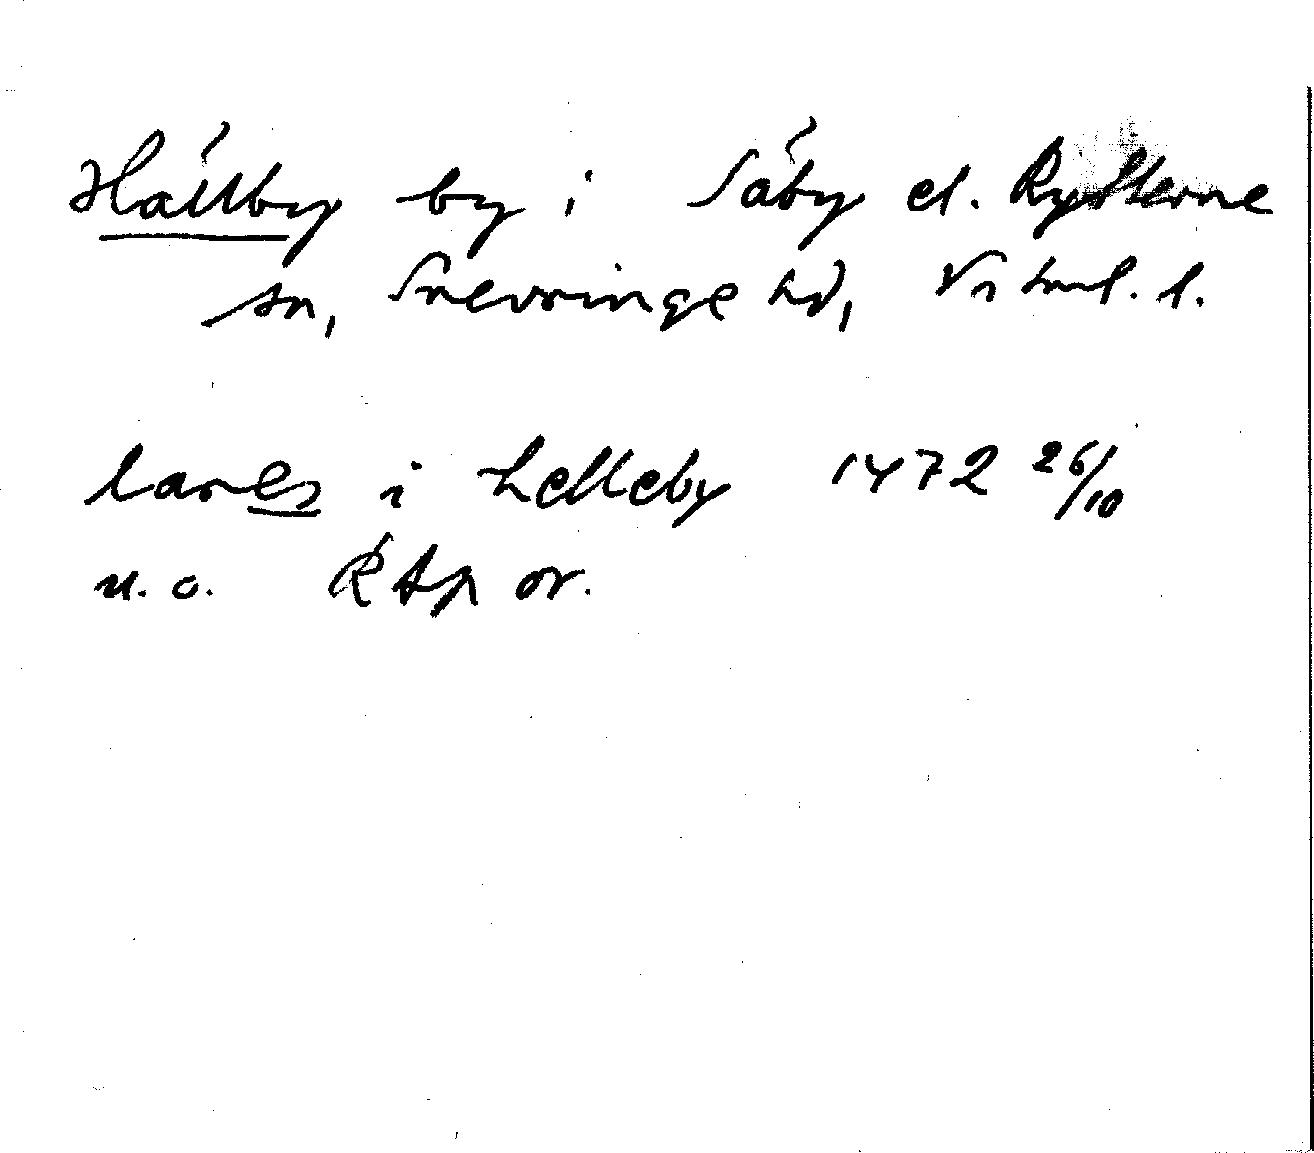 Hällby by i Säby el. Rytterne
sn, Snevringe hd, Vstml. l.
lares i helleby 1472 26/10
u. o. RAp or.